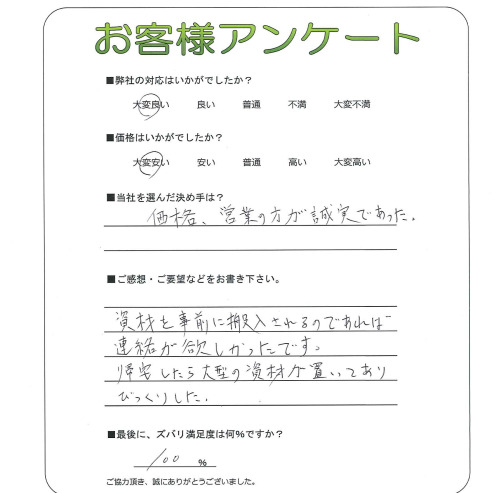 お客様アンケート
■弊社の対応はいかがでしたか？
大変良い 良い 普通 不満 大変不満
■価格はいかがでしたか？
大変安い 安い 普通 高い 大変高い
■当社を選んだ決め手は？
価格、営業の方が誠実であった。
■ご感想・ご要望などをお書き下さい。
資材を事前に搬入されるのであれば
連絡が欲しかったです。
帰宅したら大型の資材が置いてあり
びっくりした。
■最後に、ズバリ満足度は何%ですか？
100 %
ご協力頂き、誠にありがとうございました。